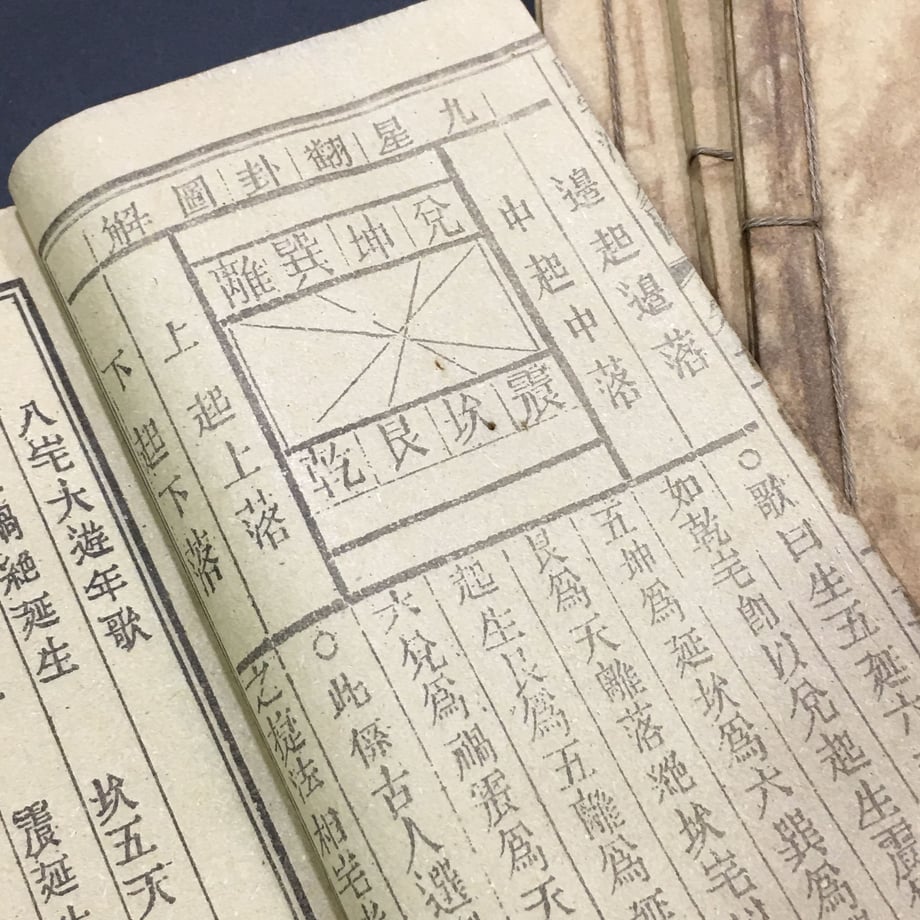 九星翻卦圖解
邊起邊落
中起中落
兌坤巽離
震坎艮乾
上起上落
下起下落
○歌曰生五延六
如乾宅卽以兌起生震
五坤為延坎為六巽為
艮為天離落絕坎宅
起生艮為五離為延
六兌為禍震為天
○此係古人選
之㨗法相宅
八宅大遊年歌
坎五天
禍絕延生
震延